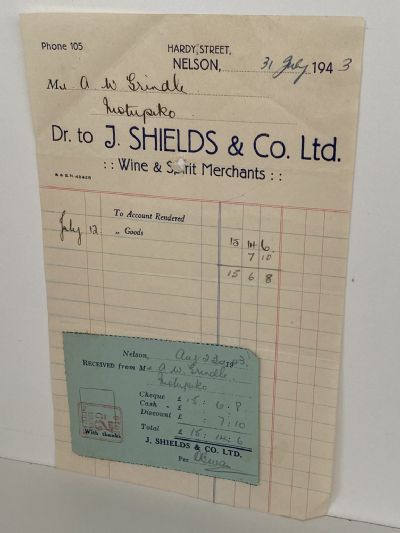 Phone 105
HARDY STREET,
NELSON, 31 July 1943
Mr A W Grindle
Motupiko
Dr. to J. SHIELDS & Co. Ltd.
:: Wine & Spirit Merchants ::
To Account Rendered
July 12 „ Goods 15 14 6
7 10
15 6 8
Nelson, Aug 23 1943
RECEIVED from Mr A. W. Grindle
Motupiko
Cheque £ 15 : 6 : 8
Cash £
Discount £ : 7 : 10
Total £ 15 : 14 : 6
With thanks
J. SHIELDS & CO. LTD.
Per